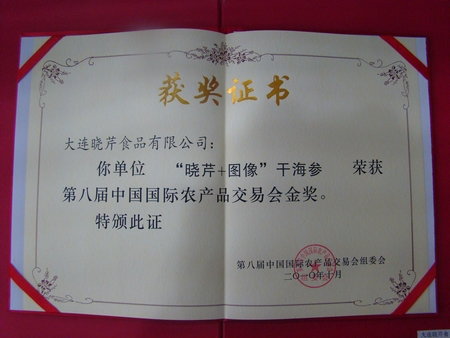 获奖证书
大连晓芹食品有限公司：
你单位 “晓芹+图像”干海参 荣获
第八届中国国际农产品交易会金奖。
特颁此证
第八届中国国际农产品交易会组委会
二〇一〇年十月
大连晓芹食